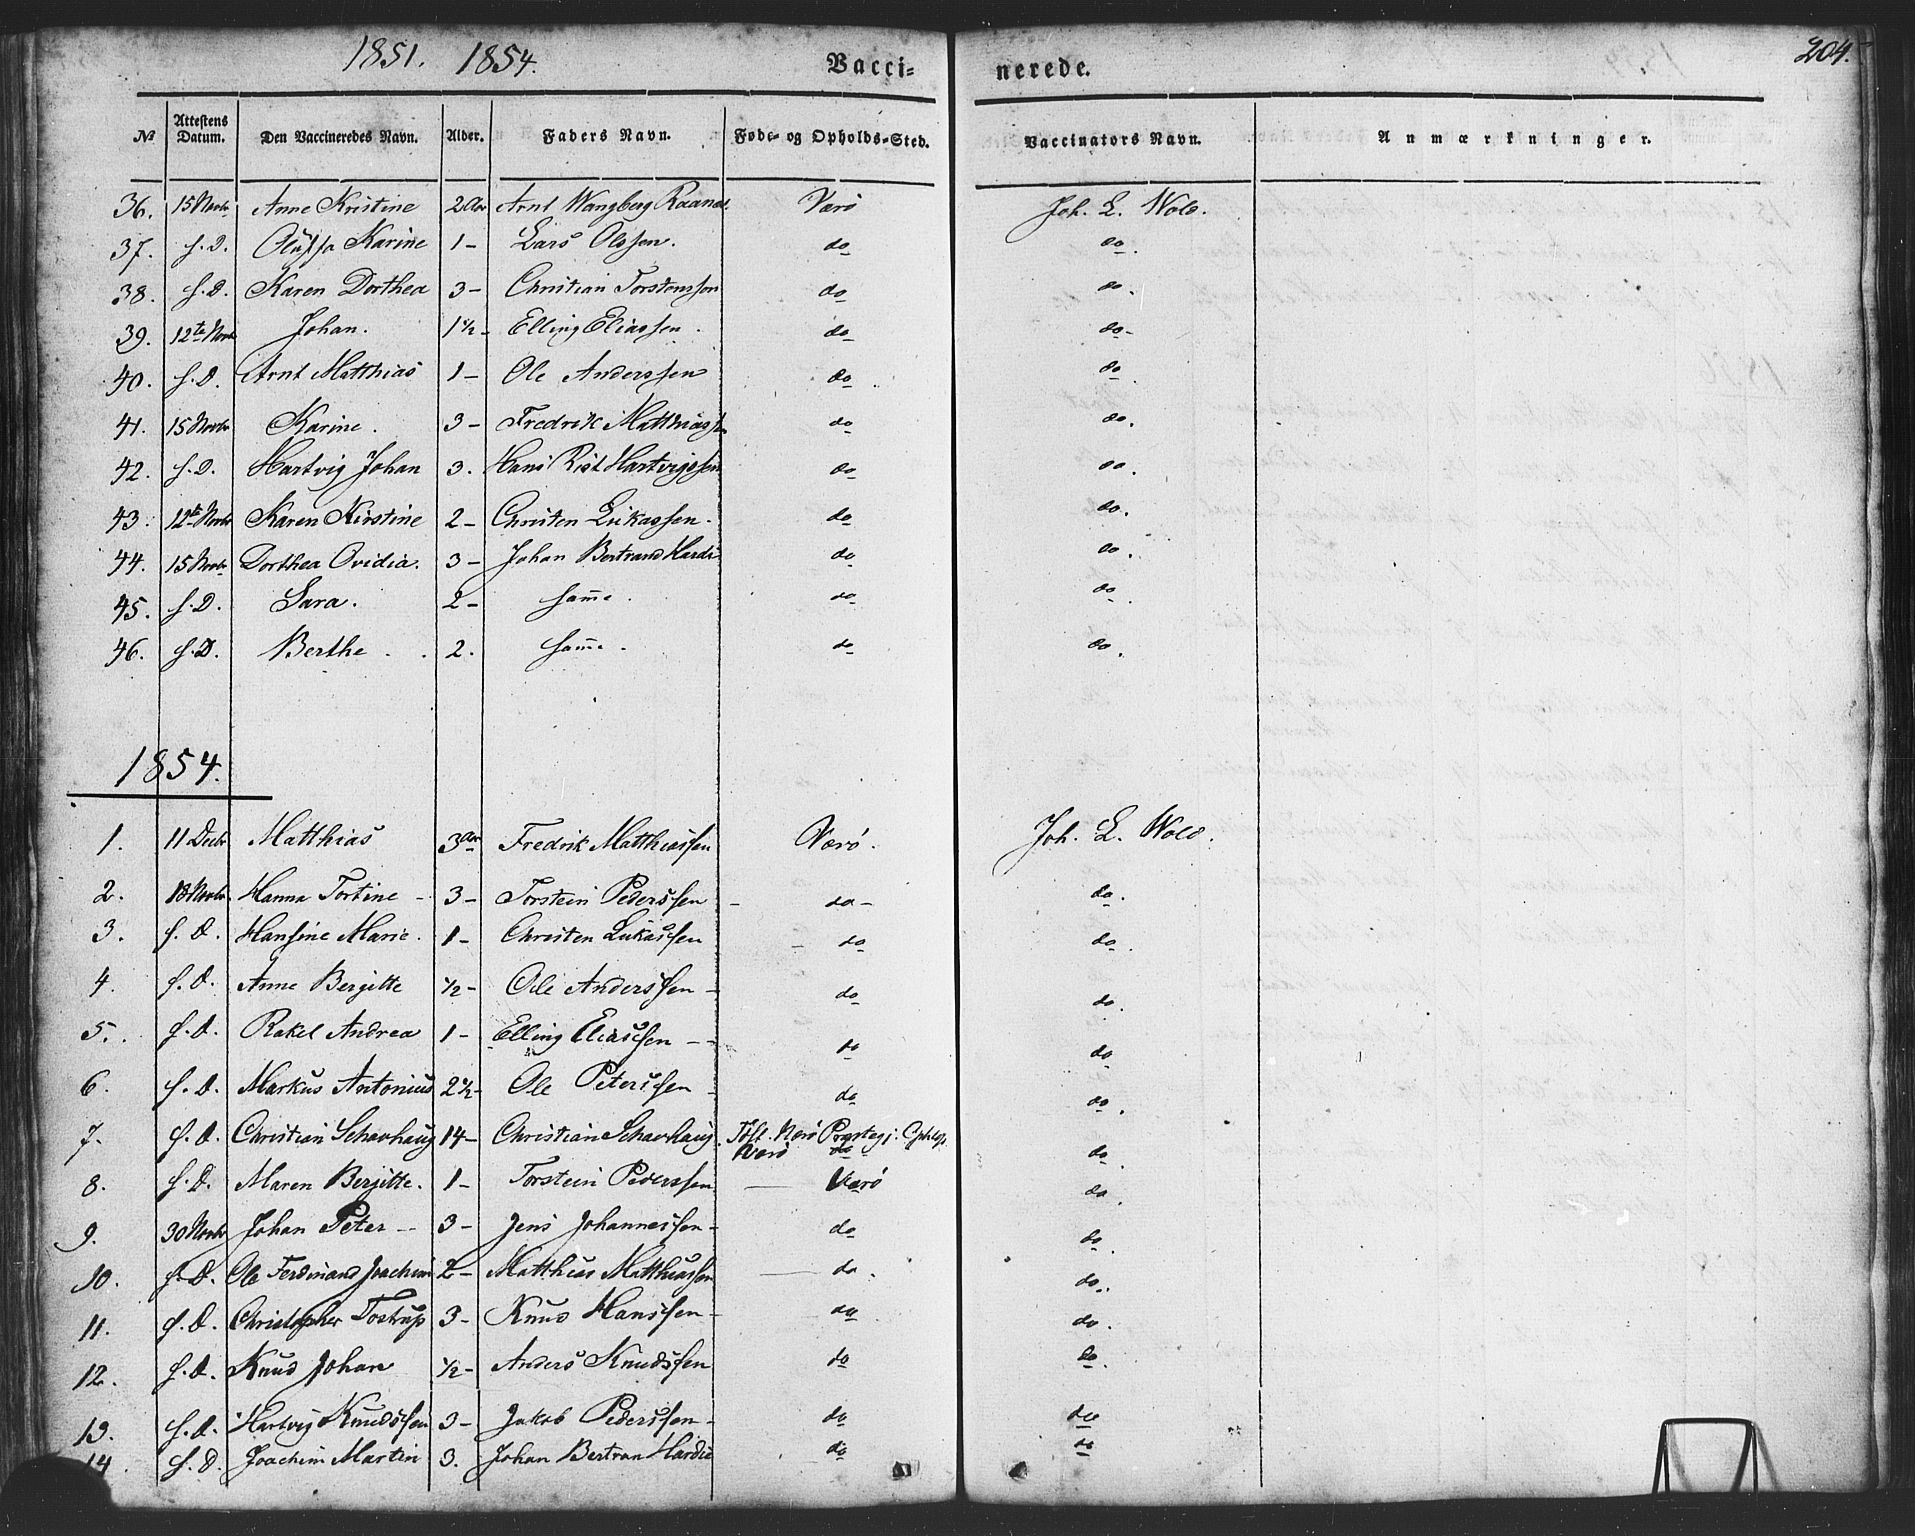 1851. 1854. Vacci- nerede. 204.
№ Attestens Datum. Den Vaccineredes Navn. Alder. Faders Navn. Føde- og Opholds-Sted. Vaccinators Navn. Anmærkninger.
36. 15 Novbr Anne Kristine 2 Aar Arnt Wangberg Værö Joh. L. Wold.
37. s. D. Oluffa Karine 1 - Lars Olssen. do do.
38. s. D. Karen Dorthea 3 - Christian Torstenssen do do.
39. 12te Novbr Johan. 1 1/2 - Elling Eliassen. do do -
40. s. D. Arnt Matthias 1 - Ole Anderssen do do.
41. 15 Novbr Karine. 3 - Fredrik Matthiassen do do.
42. s. D. Hartvig Johan 3. Hans Rist Hartvigssen do do.
43. 12te Novbr Karen Kirstine 2 - Christen Lukassen. do do.
44. 15 Novbr Dorthea Ovidia. 3 - Johan Bertrand Hardi do do.
45. s. D. Sara. 2 - samme. do do.
46. s. D. Berthe. 2. samme. do do.
1854.
1. 11 Decbr Matthias 3 Aar Fredrik Matthiassen Værö. Joh. L. Wold.
2. 18 Novbr. Hanna Tortine - 3 - Torstein Pederssen - do - do.
3. s. D. Hansine Marie. 1 - Christen Lukassen - do do.
4. s. D. Anne Bergitte 1/2 - Ole Anderssen - do do.
5. s. D. Rakel Andrea 1 - Elling Eliassen - - do do
6. s. D. Markus Antonius 2 1/2 - Ole Peterssen - do do.
7. s. D. Christian Schavhaug 14 - Christian Schavhaug. Toft. Værö Præstegj. do.
Værö do
8. s. D. Maren Bergitte. 1 - Torstein Pederssen — Værö do.
9. 30 Novbr Johan Peter - 3 - Jens Johannessen - do do.
10. s. D. Ole Ferdinand Joachim 2 - Matthias Matthiassen — do. do.
11. s. D. Christopher Tostrup 3 - Knud Hanssen - do do.
12. s. D. Knud Johan 1/2 - Anders Knudssen do do.
13. s. D. Hartvig Knudssen 3 - Jakob Pederssen - do do
14. s. D. Joachim Martin 3. Johan Bertran Hardi do do